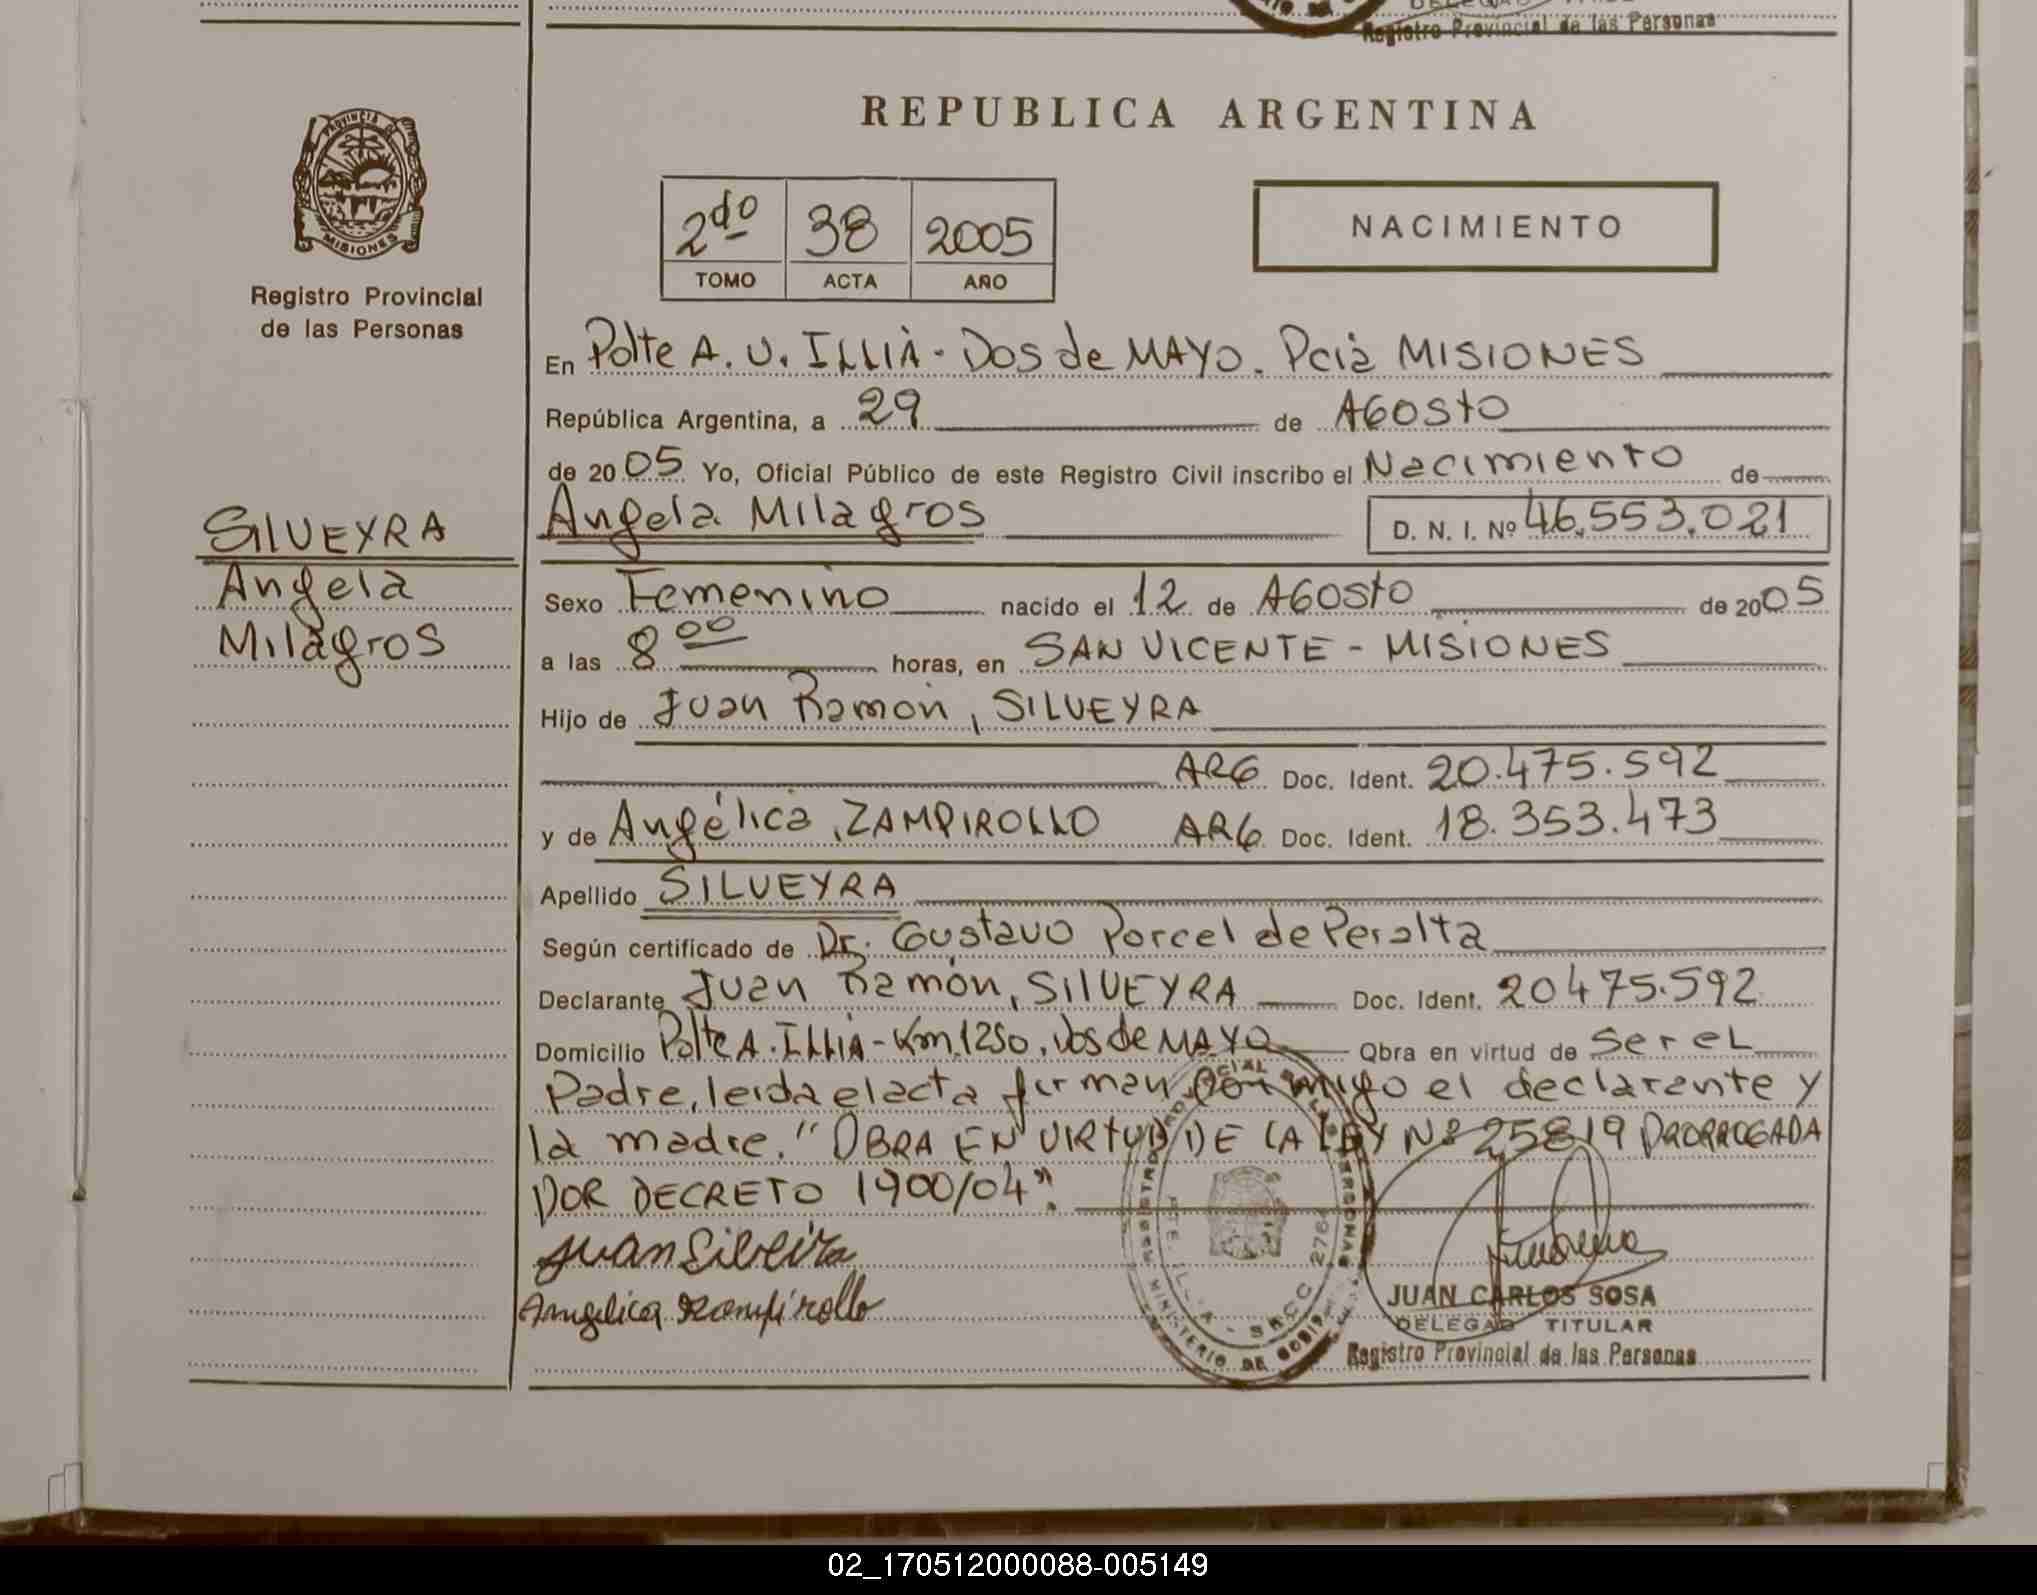 Registro Provincial de las Personas
PROVINCIA DE
MISIONES
Registro Provincial
de las Personas
SILVEYRA
Angela
Milagros
REPUBLICA ARGENTINA
2do 38 2005
TOMO ACTA AÑO
NACIMIENTO
En Pdte A. U. ILLIA - Dos de MAYO. Pcia MISIONES
República Argentina, a 29 de AGOSTO
de 2005 Yo, Oficial Público de este Registro Civil inscribo el Nacimiento de
Angela Milagros D. N. I. Nº 46.553.021
Sexo Femenino nacido el 12 de AGOSTO de 2005
a las 8 00 horas, en SAN VICENTE - MISIONES
Hijo de Juan Ramon, SILVEYRA
ARG Doc. Ident. 20.475.592
y de Angélica, ZAMPIROLLO ARG Doc. Ident. 18.353.473
Apellido SILVEYRA
Según certificado de Dr. Gustavo Porcel de Peralta
Declarante Juan Ramón, SILVEYRA Doc. Ident. 20475.592
Domicilio Pdte A. ILLIA - Km. 1250, Dos de MAYO Obra en virtud de ser el
Padre, leida el acta firman conmigo el declarante y
la madre. "OBRA EN VIRTUD DE LA LEY Nº 25819 PRORROGADA
POR DECRETO 1900/04".
Juan Silveira
Angelica Zampirollo
JUAN CARLOS SOSA
DELEGADO TITULAR
Registro Provincial de las Personas
02_170512000088-005149